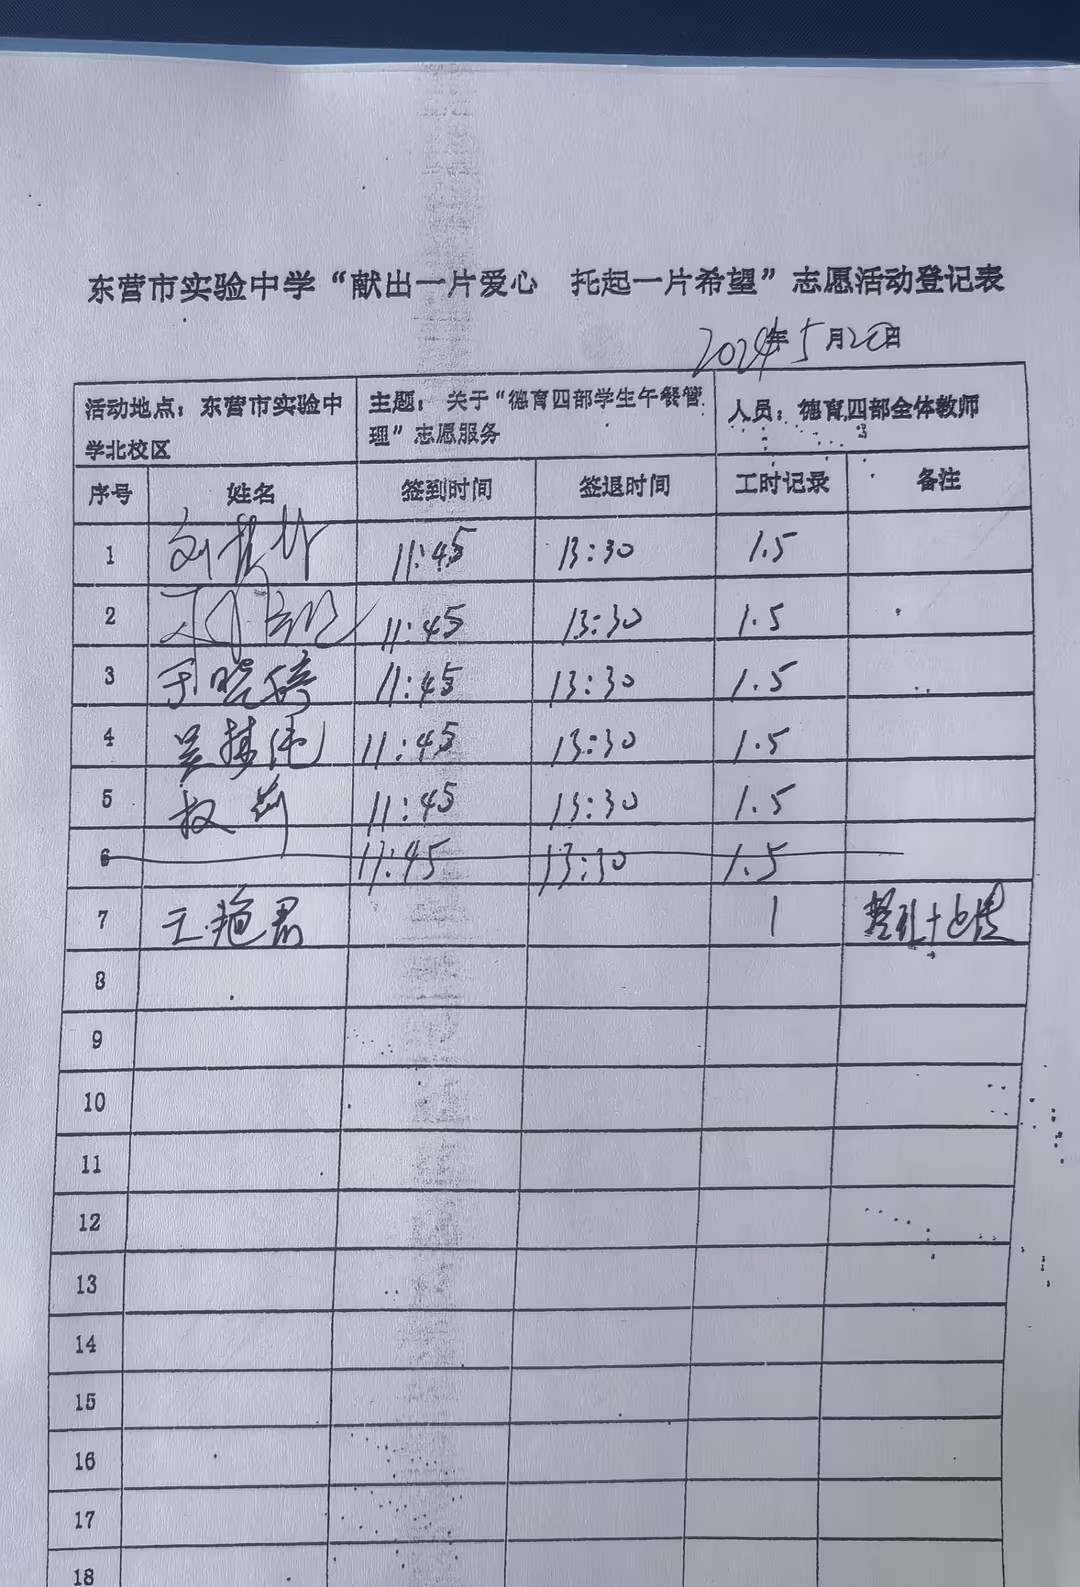 东营市实验中学“献出一片爱心 托起一片希望”志愿活动登记表
2024年5月20日
活动地点：东营市实验中学北校区 主题：关于“德育四部学生午餐管理”志愿服务 人员：德育四部全体教师
序号 姓名 签到时间 签退时间 工时记录 备注
1 刘 11:45 13:30 1.5
2 11:45 13:30 1.5
3 于晓婷 11:45 13:30 1.5
4 吴 11:45 13:30 1.5
5 权莉 11:45 13:30 1.5
6 11:45 13:30 1.5
7 王艳君 1
8
9
10
11
12
13
14
15
16
17
18